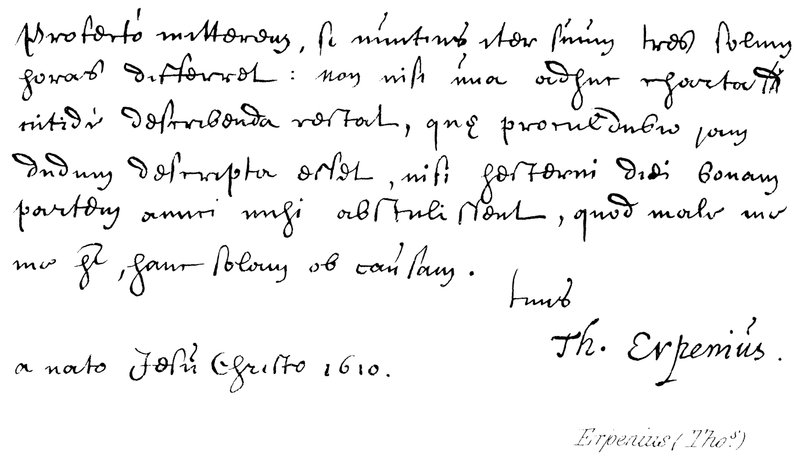 Profecto mitterem, si nuntius iter suum tres solum
horas differret : non nisi una adhuc charta
nitide describenda restat, quę proculdubio jam
dudum descripta esset, nisi hesterni diei bonam
partem amici mihi abstulissent, quod male me
me hēt, hanc solam ob causam.
tuus
Th. Erpenius.
a nato Jesu Christo 1610.
Erpenius (Thos)